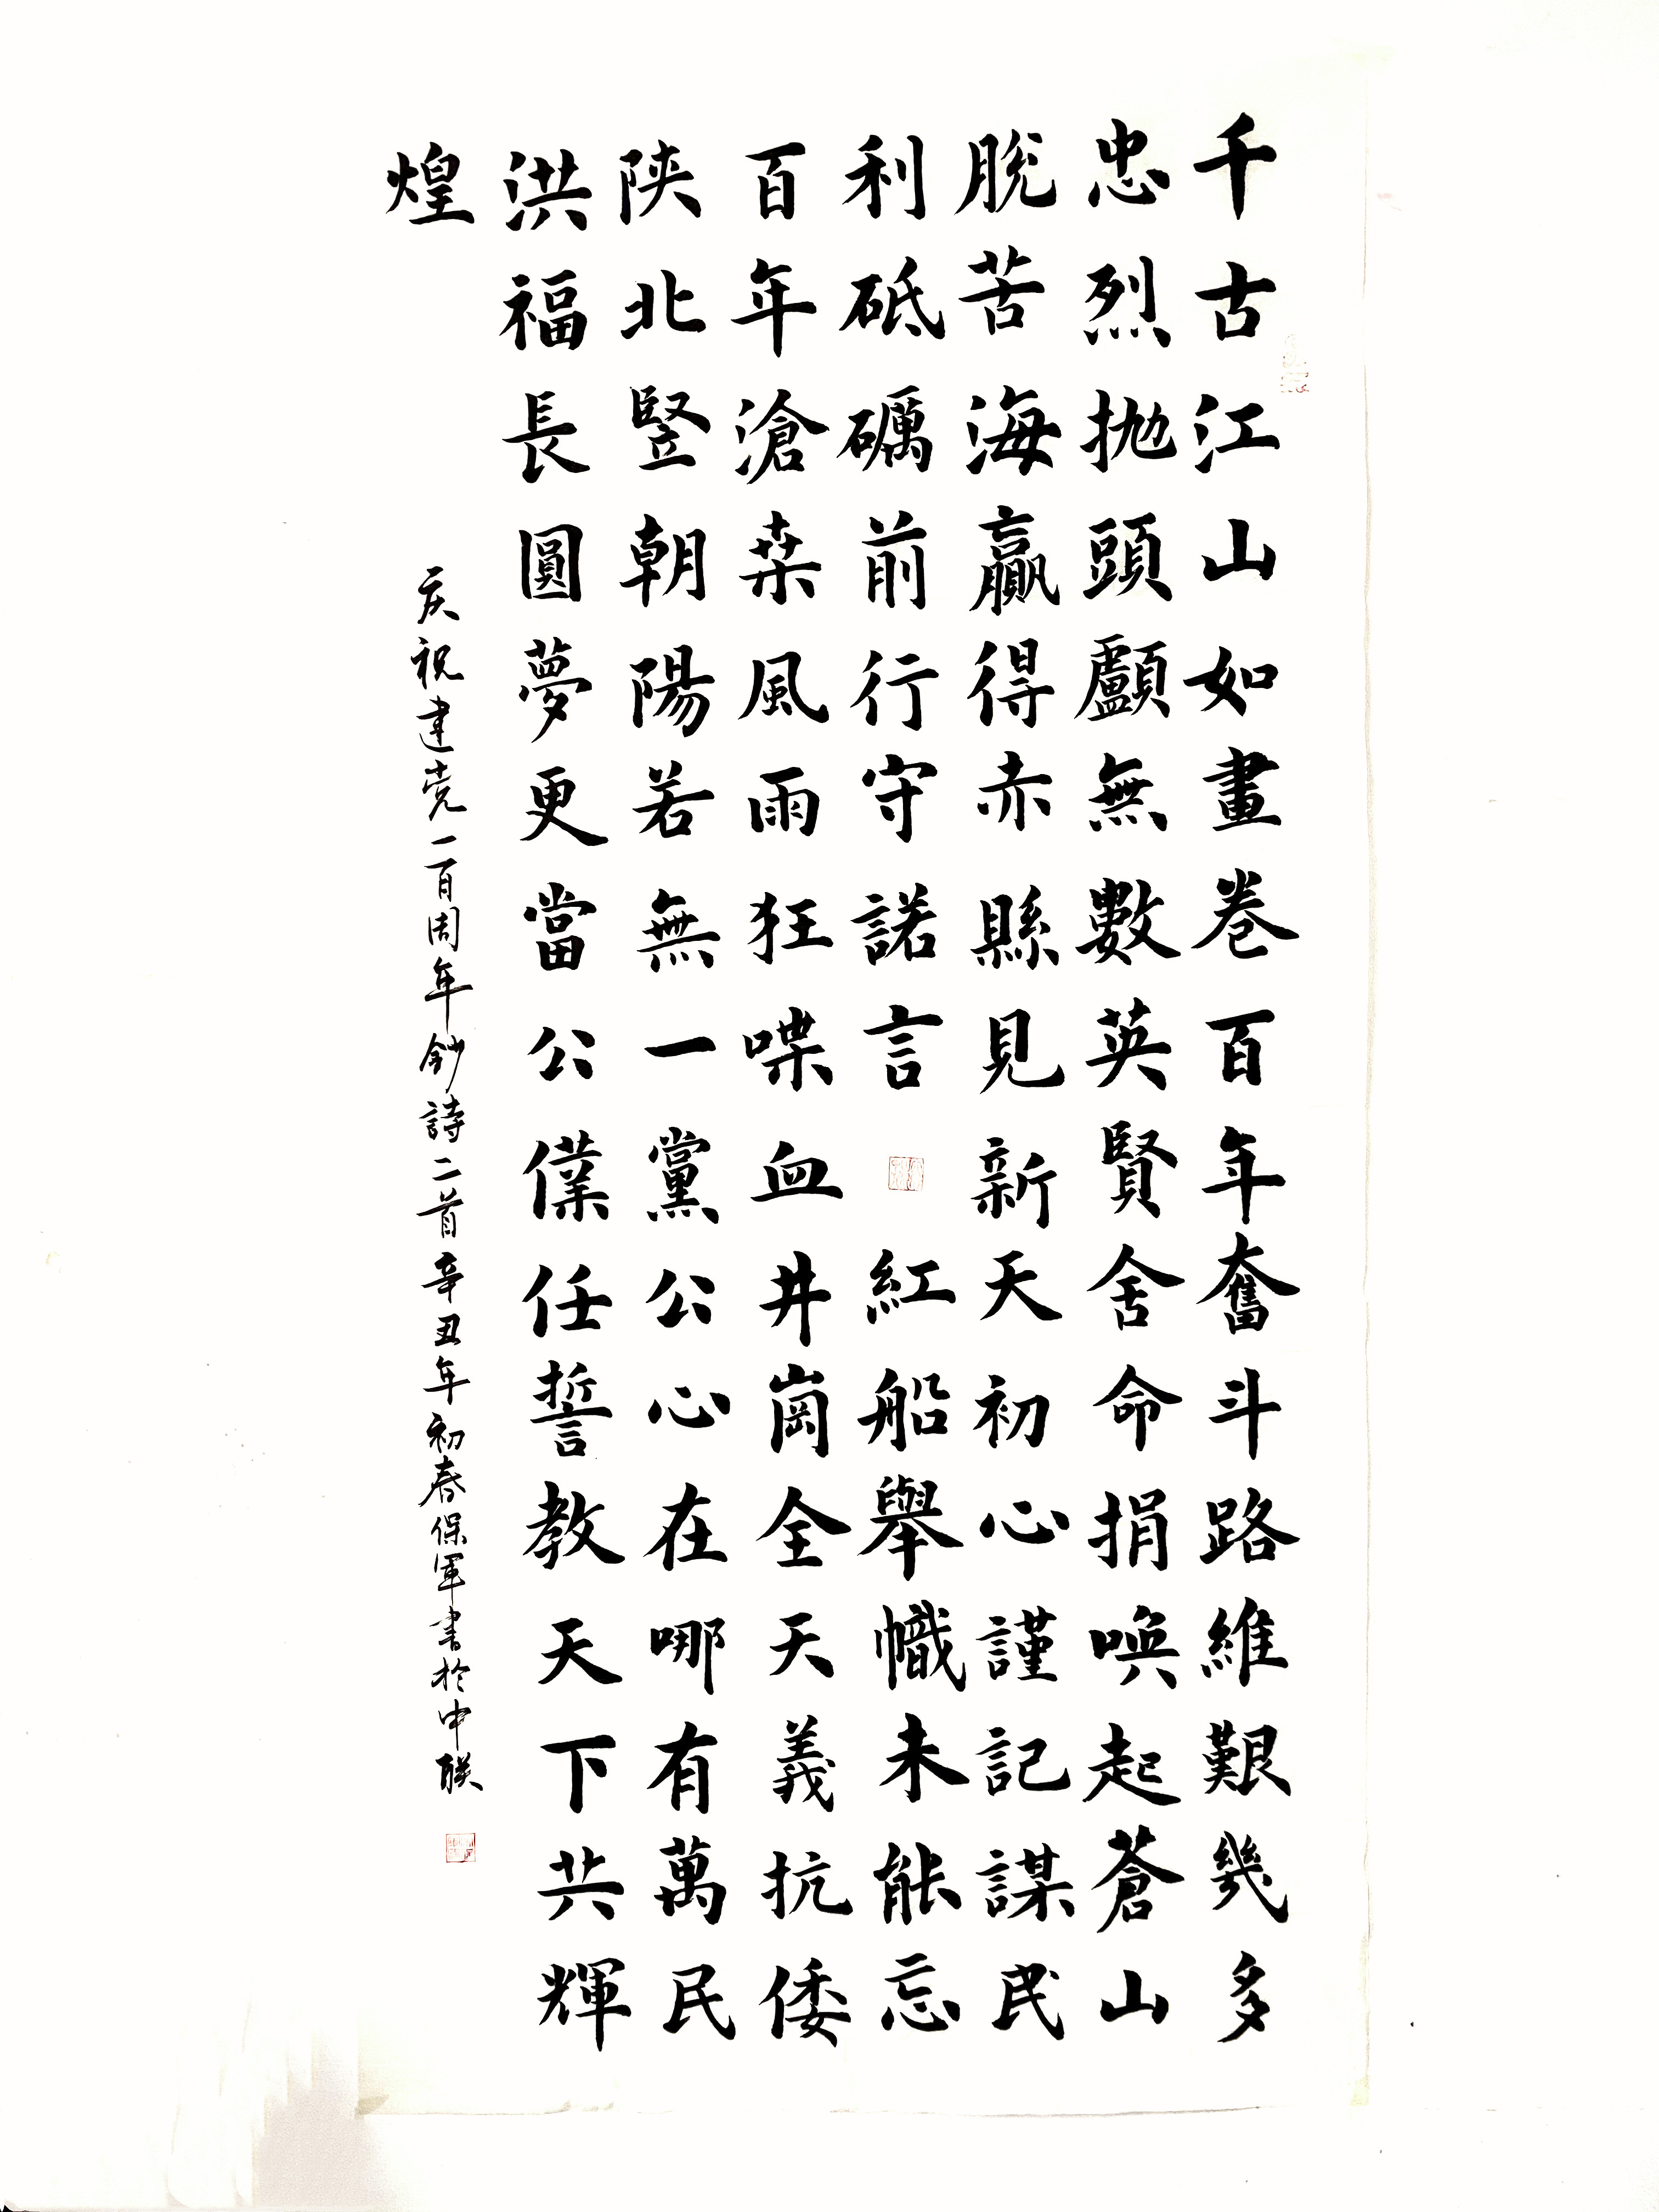 千古江山如畫卷百年奮斗路維艱幾多
忠烈抛頭顱無數英賢舍命捐喚起蒼山
脫苦海贏得赤縣見新天初心謹記謀民
利砥礪前行守諾言紅船舉幟未能忘
百年滄桒風雨狂喋血井崗全天義抗倭
陝北豎朝陽若無一黨公心在哪有萬民
洪福長圓夢更當公僕任誓教天下共輝
煌
庆祝建党一百周年鈔詩二首辛丑年初春保軍書於中联